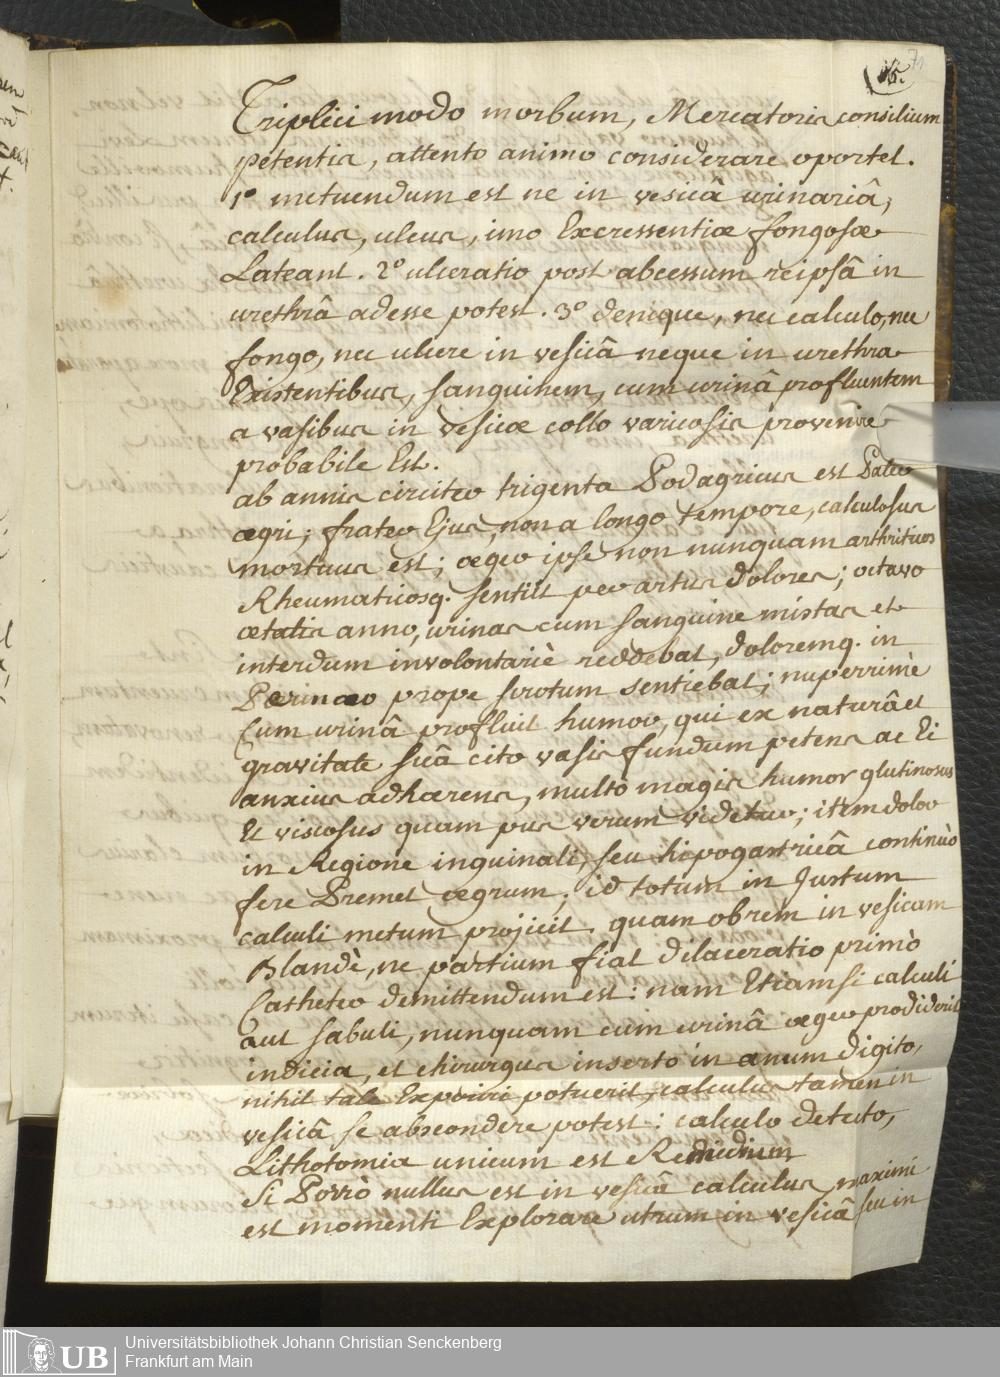 15.
71
Triplici modo morbum, Mercatoris consilium
petentis, attento animo considerare oportet.
1° metuendum est ne in vesicâ urinariâ,
calculus, ulcus, imo Excressentiæ fongosæ
Lateant. 2° ulceratio post abcessum reipsâ in
urethrâ adesse potest. 3° denique, nec calculo, nec
fongo, nec ulcere in vesicâ neque in urethra
Existentibus, sanguinem, cum urinâ profluentem
a vasibus in vesicæ collo varicosis provenire
probabile Est.
ab annis circiter trigenta Podagricus est Pater
ægri; frater Ejus, non a longo tempore, calculosus
mortuus est; æger ipse non nunquam arthriticos
Rheumaticosq. sentiit per artus dolores; octavo
ætatis anno, urinas cum sanguine mistas et
interdum involontariè reddebat, doloremq. in
Perinæo prope scrotum sentiebat; nuperrimè
Cum urinâ profluit humor, qui ex naturâ et
gravitate suâ cito vasis fundum petens ac Ei
anxius adhærens, multo magis humor glutinosus
Et viscosus quam pus verum videtur; item dolor
in Regione inguinali, seu hipogastricâ continùo
fere Premet ægrum; id totum in Justum
calculi metum projicit. quam obrem in vesicam
Blandè, ne partium fiat dilaceratio primò
Catheter demittendum est: nam Etiamsi calculi
aut sabuli, nunquam cum urinâ æger prodiderit
indicia, et chirurgus inserto in anum digito,
nihil tale Experiri potuerit, calculus tamen in
vesicâ se abscondere potest: calculo detecto,
Lithotomia unicum est Remedium
Si Porrò nullus est in vesicâ calculus, maximi
est momenti Explorare utrum in vesicâ seu in
UB
Universitätsbibliothek Johann Christian Senckenberg
Frankfurt am Main